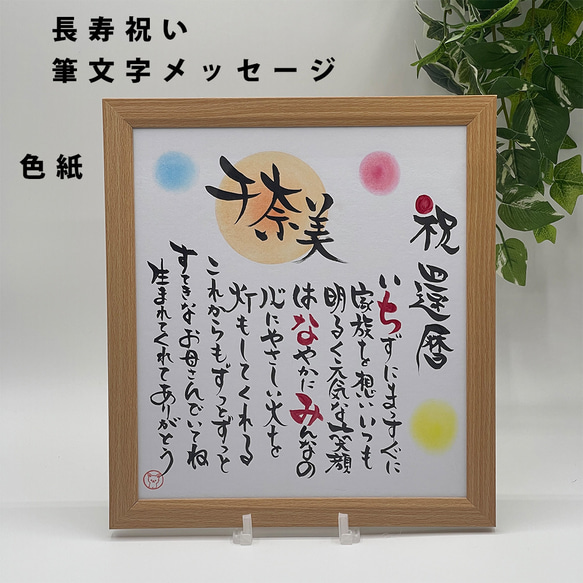 長寿祝い
筆文字メッセージ
色紙
千奈美
祝 還暦
いちずにまっすぐに
家族を想い いつも
明るく元気な笑顔
はなやかにみんなの
心にやさしい火を
灯もしてくれる
これからもずっとずっと
すてきなお母さんでいてね
生まれてくれてありがとう